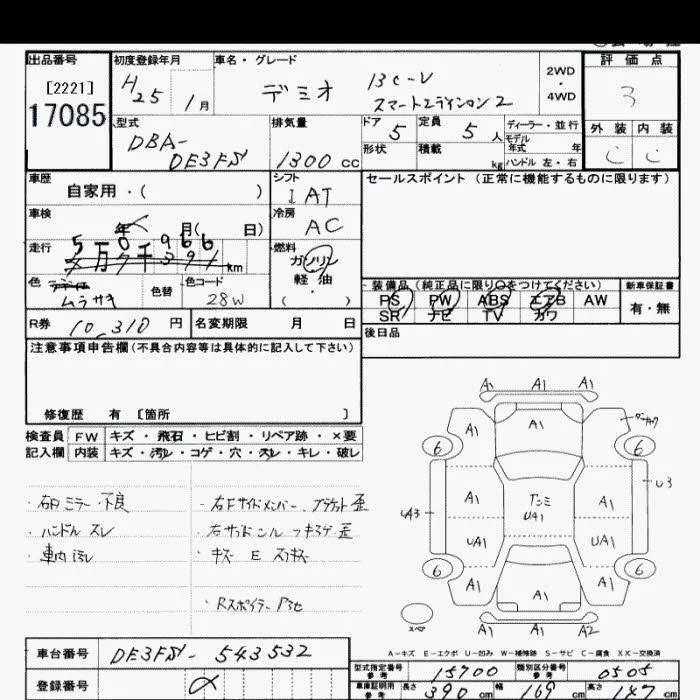 出品番号
[2221]
17085
初度登録年月
H25 1月
車名・グレード
デミオ 13C-V
スマートエディション2
2WD
・
4WD
評価点
3
外装 内装
C C
型式
DBA-
DE3FS
排気量
1300 cc
ドア 5
定員 5人
ディーラー・並行
モデル年式 年
形状
積載 kg
ハンドル 左・右
車歴
自家用・( )
シフト
IAT
セールスポイント (正常に機能するものに限ります)
車検
年 月( 日)
冷房
AC
走行
5万0千966
km
燃料
ガソリン
軽 油
・
( )
色
ムラサキ
色替
色コード
28W
装備品 (純正品に限り○をつけてください)
PS PW ABS エアB AW
SR ナビ TV カワ
新車保証書
有・無
R券 10,310 円
名変期限 月 日
後日品
注意事項申告欄 (不具合内容等は具体的に記入して下さい)
修復歴 有 [箇所 ]
検査員 FW キズ・飛石・ヒビ割・リペア跡・×要
記入欄 内装 キズ・汚レ・コゲ・穴・スレ・キレ・破レ
・右Dミラー不良
・ハンドルスレ
・車内汚レ
・右Fサイドメンバー、ブラケット歪
・キズ E スリキズ
A1 A1 A1
A1 A1
6 6
A1 A1
U3
UA3
UA1
UA1 UA1
6 6
A1 A1 A1
スペア
A1 A1 A2
A-キズ E-エクボ U-凹み W-補修跡 S-サビ C-腐食 XX-交換済
車台番号 DE3FS-543532
登録番号
型式指定番号 参考 15700
類別区分番号 参考 0505
車庫証明用 参考 長さ 390 cm 幅 169 cm 高さ 147 cm